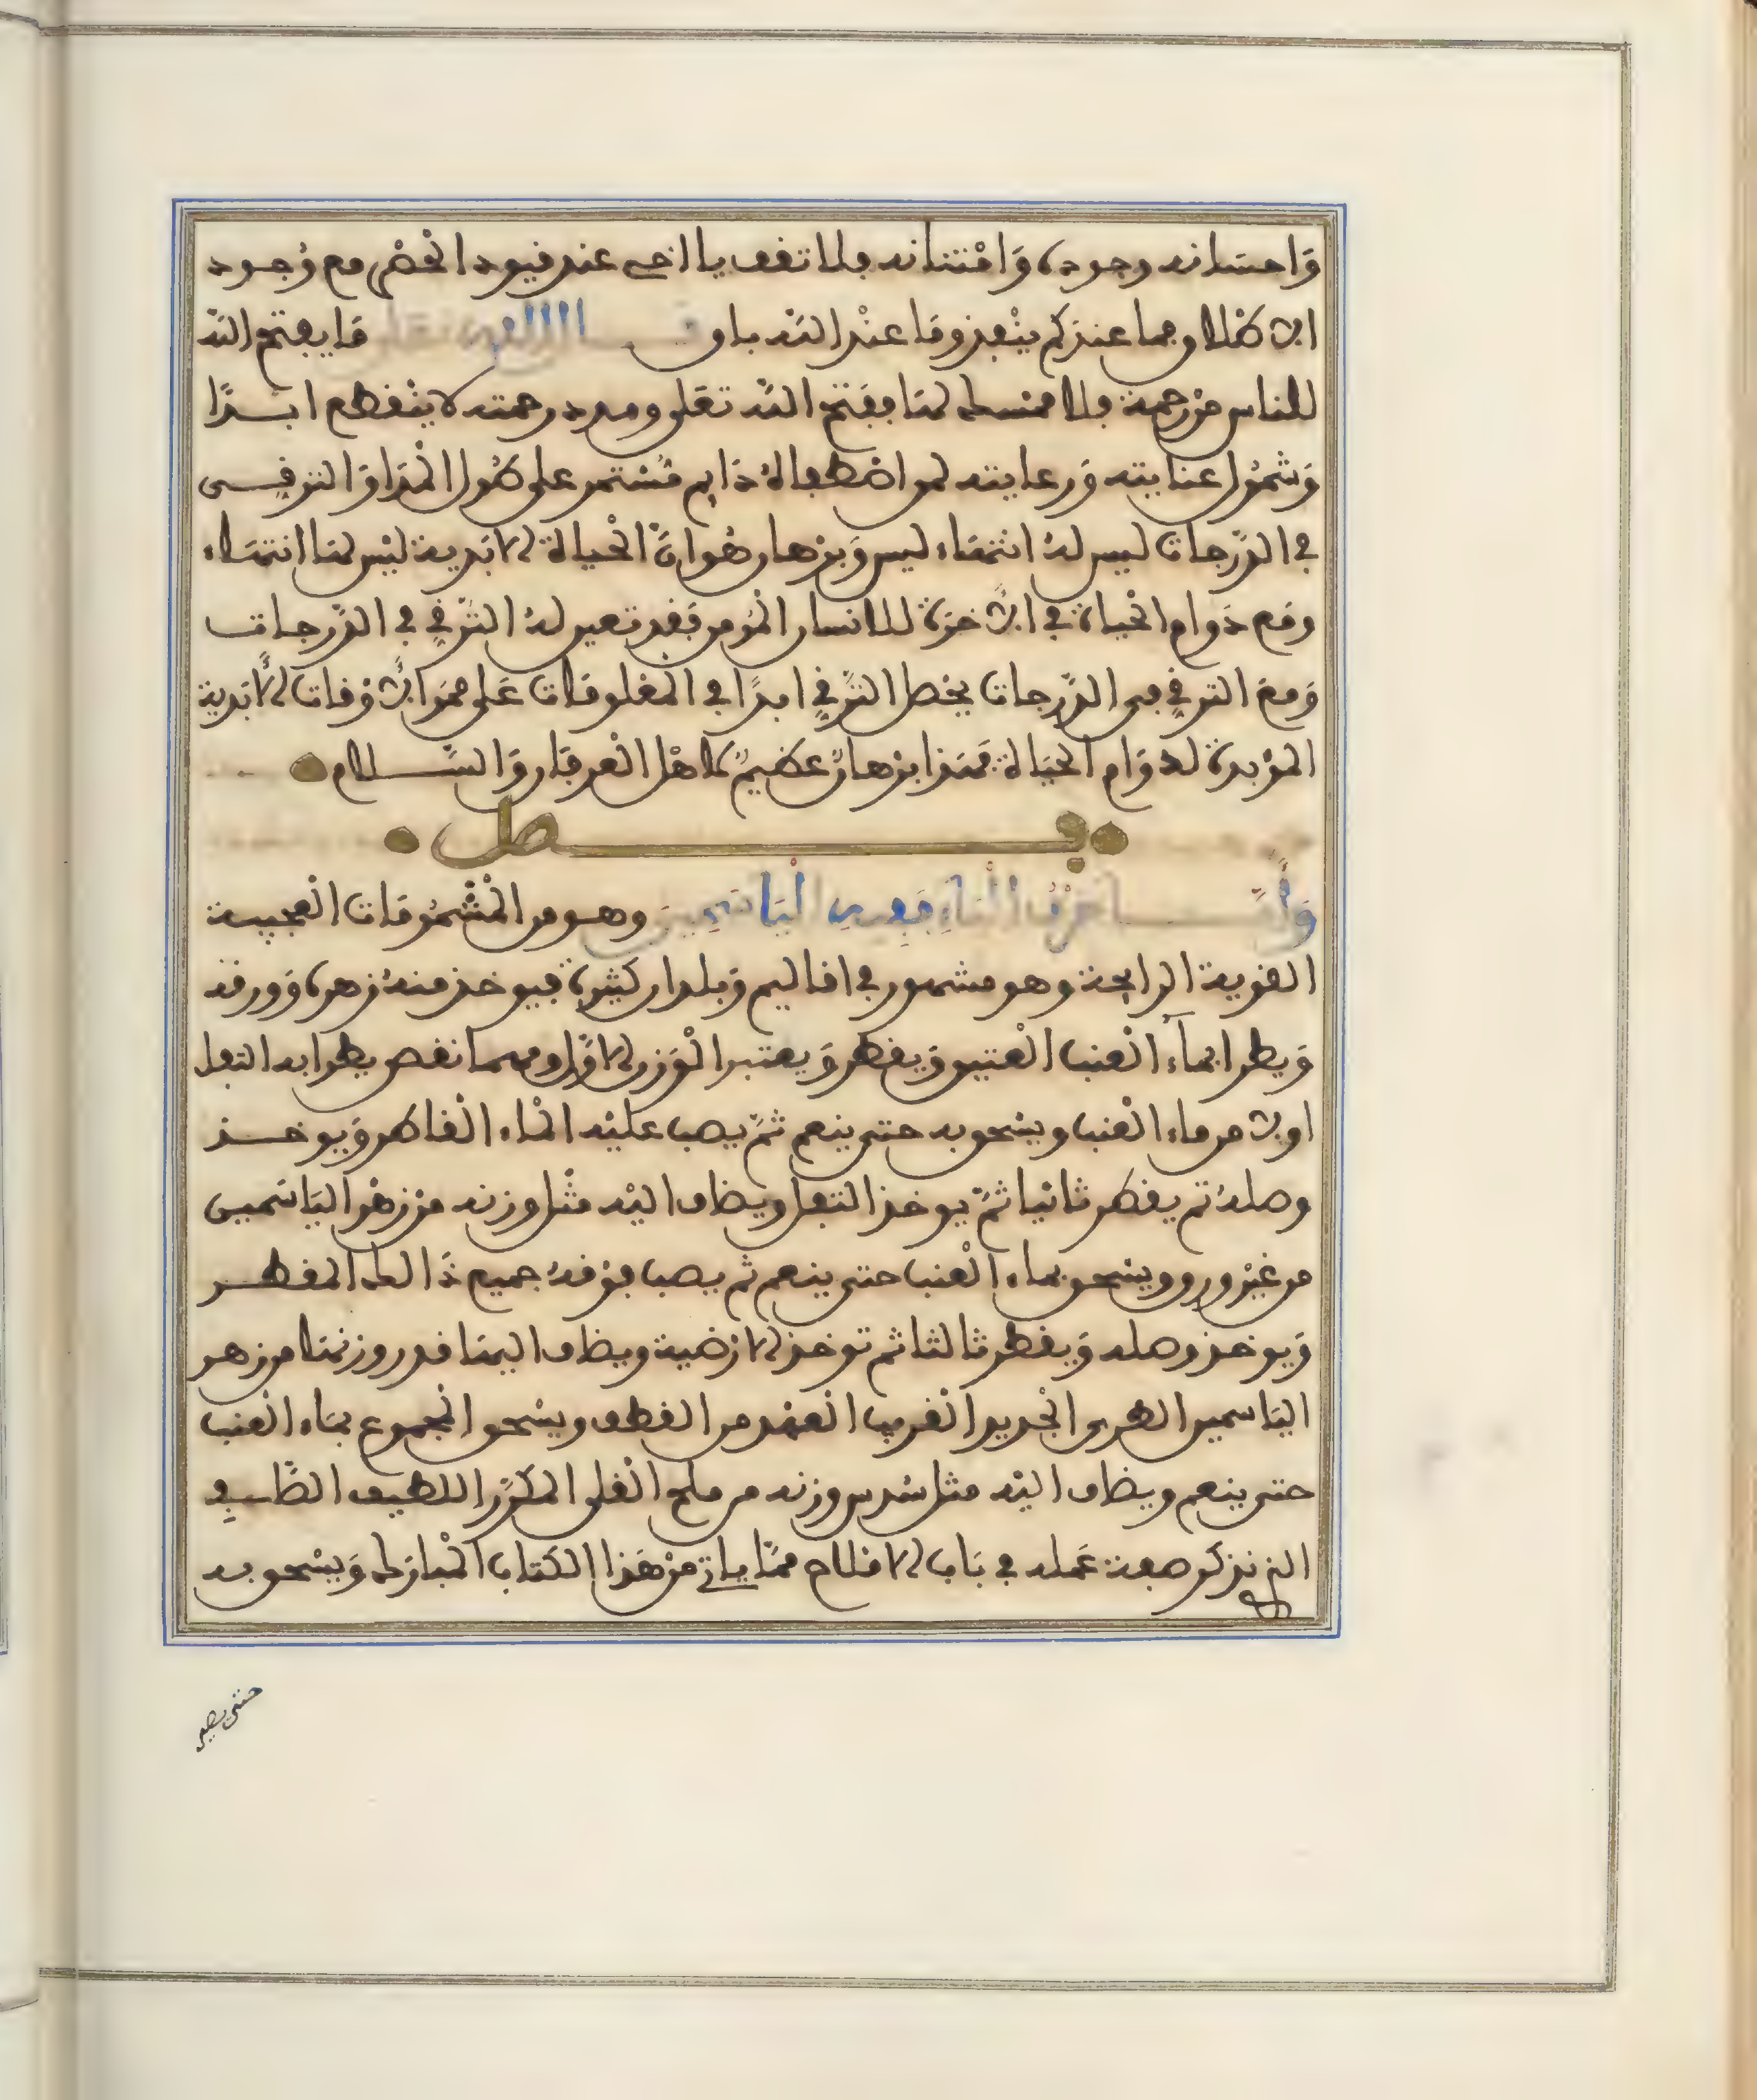 وَاحسَانه وجوده وَامْتنانه فلا تقف يا اخي عند قيود الحصْر مع وُجود
الاطْلاق فما عندكم ينْفد وَما عنْد الله باق قال الله تعالى مَا يفتح الله
للناس منْ رحمة فلا ممسك لهَا ففتح الله تعَلى ومدد رحمته لا ينْقطع ابدًا
وَشمُول عنايته وَرعايته لمن اصْطفاهُ دَايم مُسْتمر على طُول المْدَا وَالترقي
في الدّرجات ليس لهُ انتهَاء ليس وَبرْهان هُو انّ الحْياة الابَدية ليْس لهَا انتهَاء
ومَع دَوام الحْياة في الاخرة للانسان المُومن فقد تعين لهُ الترقي في الدّرجات
وَمعَ الترقي في الدّرجات يحْصل الترقي ابدًا في المخلوقات عَلى ممر الاوْقات الابَدية
المؤبدة لدوَام الحيَاة فهَذا برْهانٌ عظيمٌ لاهْل العرفان وَالسَّلام
فصل
وَأمّا حَرْفُ اليَاءِ فَفِيهِ اليَاسَمِين وهو من المْشْمُومَات العْجيبة
القوية الرايحة وهو مشهور في اقاليم وَبلدان كثيرة فيوخذ منهُ زهره وَورقه
وَيطرا بمآء العْنب العْتيق وَيقطر وَيعتبر الْوَزن الاوّل ومهما نقص يطرا به التفل
اولا من ماء العْنب وينسْحق به حتى ينعم ثمّ يصب عليْه المْاء القاطر وَيوخذ
وصلهُ ثم يقطر ثانيا ثمّ يوخذ التفل ويضاف اليْه مثْل وزنه منْ زهْر اليَاسَمين
من غيْر ورق ويسْحق بماء العْنب حتى ينعم ثم يصب فوْقهُ جميع ذَالك المقطر
وَيوخذ وصله وَيقطر ثالثا ثم توخذ الارْضية ويضاف اليهَا قدر وزنهَا من زهر
اليَاسمين الطري الجْديد القْريب العْهْد من القطف ويسْحق المجْموع بمَاء العْنب
حتى ينعم ويضاف اليْه مثل سُدس وزنه من ملح القْلي المكرّر اللطيف الصَّافِي
الذي نذكر صفة عَمله في بَاب الاملاح ممّا ياتي منْ هَذا الكتاب المْبارَك وَيسْحق به
حتى يصير